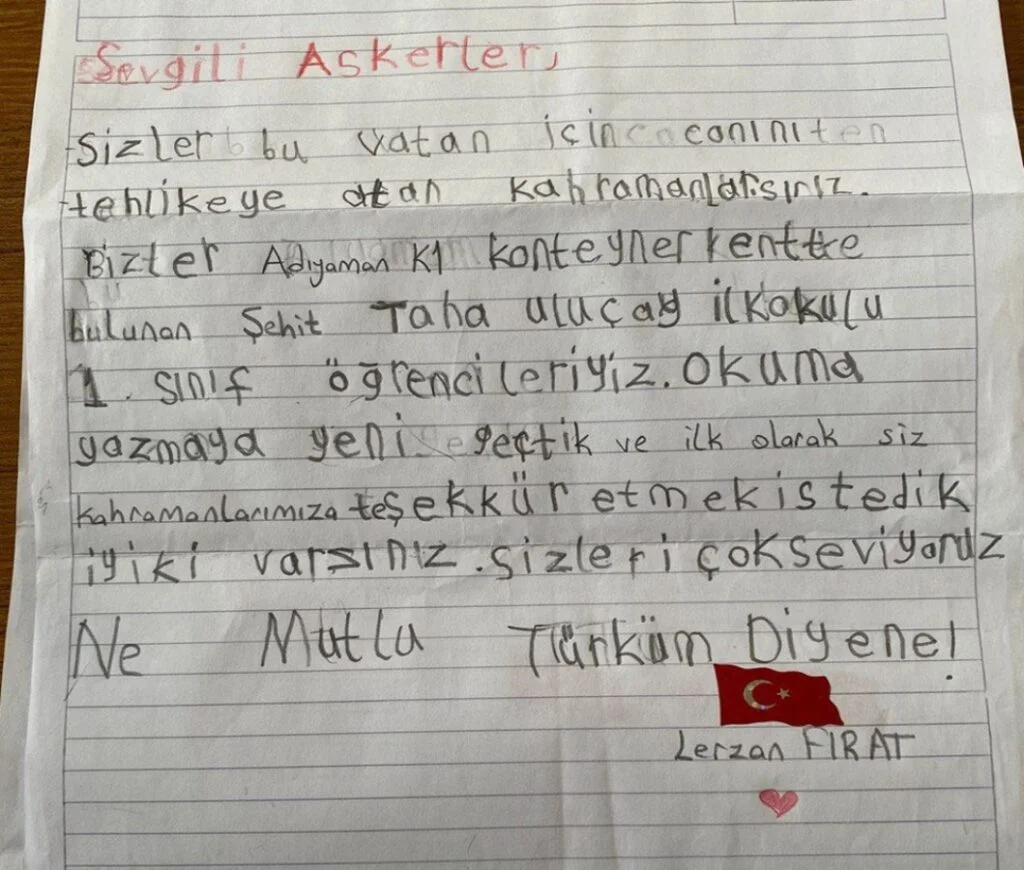 Sevgili Askerler,
Sizler bu vatan için canınıten
tehlikeye atan kahramanlarsınız.
Bizler Adıyaman K1 konteynerkentte
bulunan Şehit Taha uluçay ilkokulu
1. sınıf öğrencileriyiz. Okuma
yazmaya yeni geçtik ve ilk olarak siz
kahramanlarımıza teşekkür etmek istedik
iyiki varsınız. sizleri çokseviyoruz
Ne Mutlu Türküm Diyene!
Lerzan FIRAT